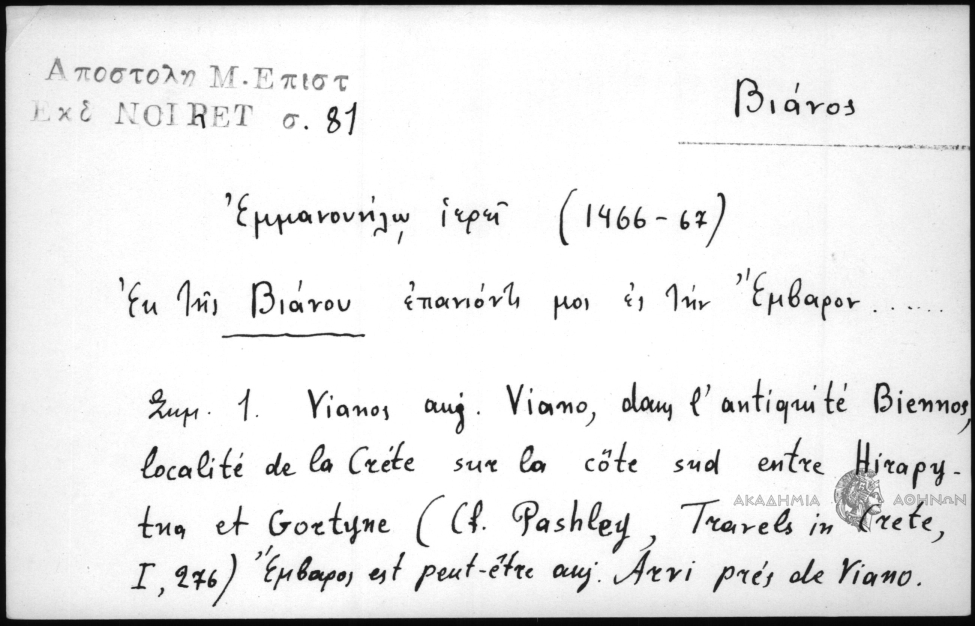 Αποστολη Μ. Επιστ
Εκδ NOIRET σ. 81
Βιάνος
Ἐμμανουνήλῳ ἱερεῖ (1466-67)
Ἐκ τῆς Βιάνου ἐπανιόντι μοι ἐς τὴν Ἔμβαρον ......
Σημ. 1. Vianos auj. Viano, dans l'antiquité Biennos,
localité de la Créte sur la côte sud entre Hirapy-
tna et Gortyne (Cf. Pashley, Travels in Crete,
I, 276) Ἔμβαρος est peut-être auj. Arvi prés de Viano.
ΑΚΑΔΗΜΙΑ ΑΘΗΝΩΝ